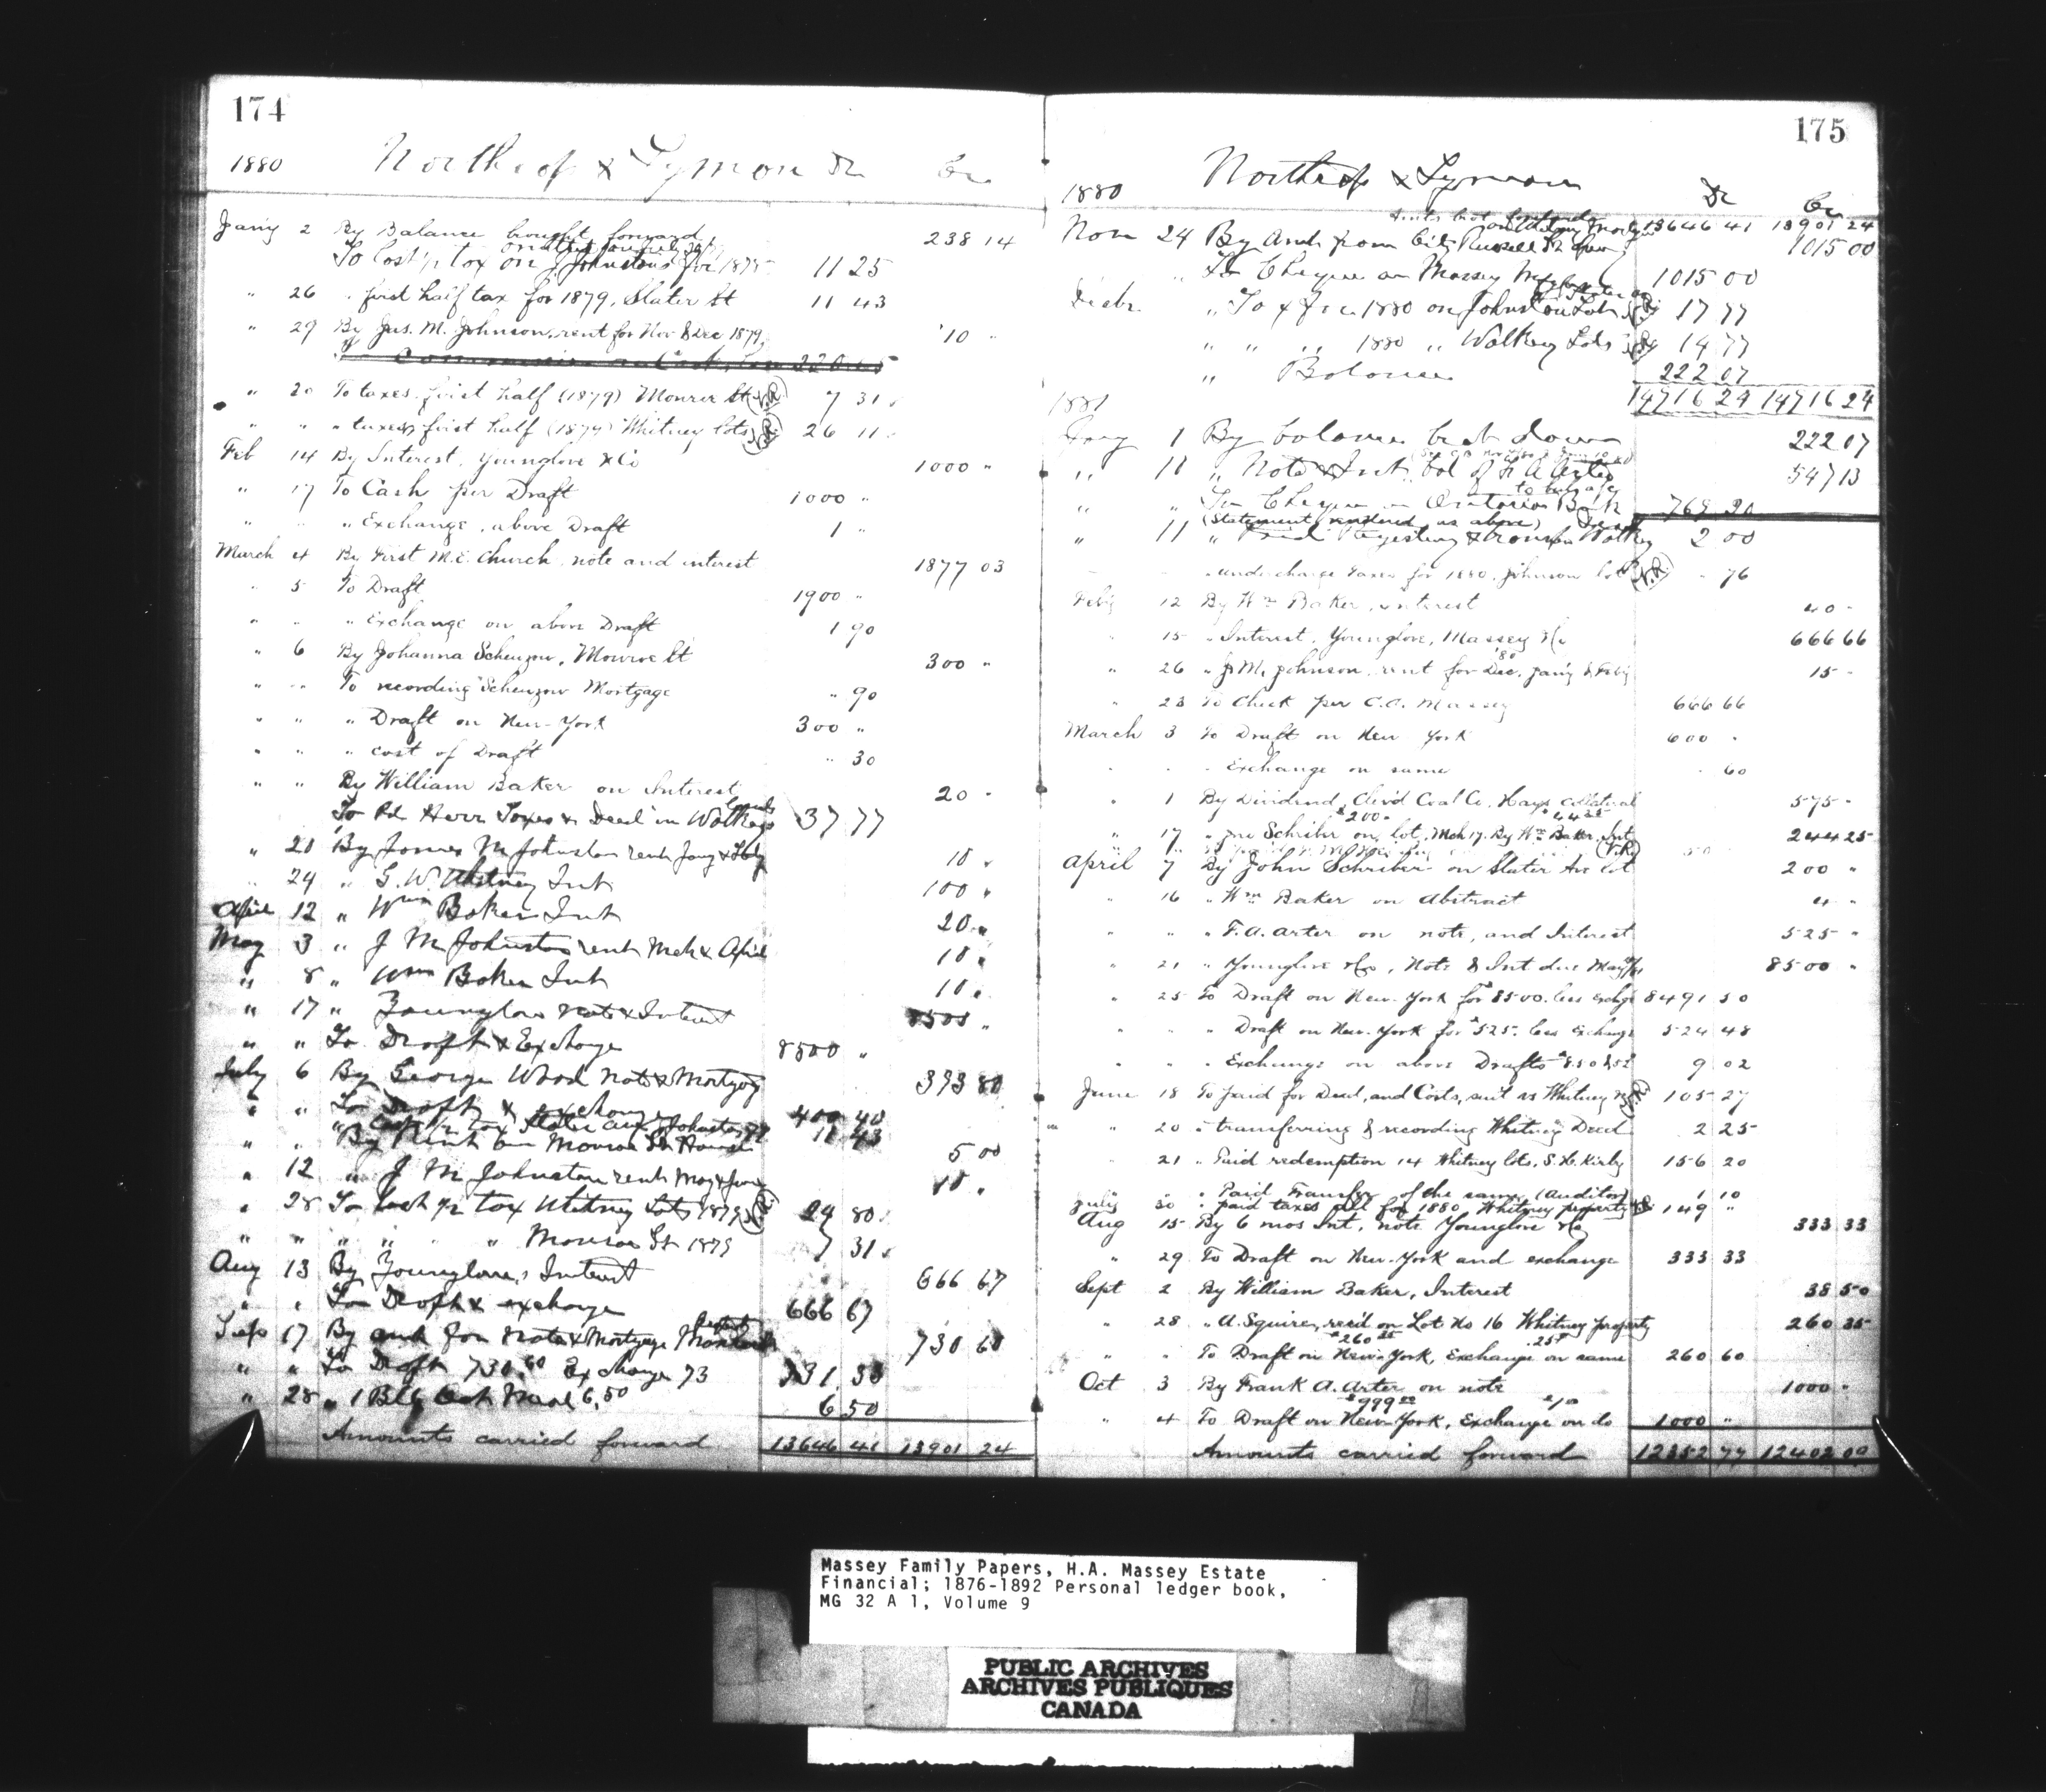 174
1880 Northrop & Lyman Dr Cr
Jany 2 By Balance bought forward 238 14
To Cost pr tax on J Johnstons for 1875 11 25
" 26 " first half tax for 1879, Slater St 11 43
" 29 By Jas. M. Johnson, rent for Nov & Dec 1879 10 "
" 20 To taxes first half (1879) Monroe St (N.R.) 7 31
" " " taxes first half (1879) Whitney lots (N.R.) 26 11
Feb 14 By Interest, Younglove & Co 1000 "
" 17 To Cash per Draft 1000 "
" " " Exchange, above Draft 1 "
March 4 By First M.E. Church, note and interest 1877 03
" 5 To Draft 1900 "
" " " Exchange on above Draft 1 90
" 6 By Johanna Schenzow, Monroe St 300 "
" " To recording Schenzow Mortgage " 90
" " " Draft on New-York 300 "
" " " cost of Draft " 30
" " By William Baker on Interest 20 "
To Pd Herr Taxes & Deed in Walkeys 37 77
" 20 By James M Johnston rent Jany & Feby 10 "
" 24 " G. W. Whitney Int 100 "
April 12 " Wm Baker Int 20 "
May 3 " J M Johnston rent Mch & April 10 "
" 8 " Wm Baker Int 10 "
" 17 " Younglove note & Interest 8500 "
" " To Draft & Exchange 8500 "
July 6 By George Wood Note & Mortgage 393 80
" " To Draft & exchange 400 40
" " " Cash pr tax Slater ave J Johnston 79 11 43
" " By Rent on Monroe St House 5 00
" 12 " J M Johnston rent May & June 10 "
" 28 To Cash pr tax Whitney Lots 1879 (N.R.) 24 80
" " " " " " Monroe St 1879 7 31
Aug 13 By Younglove, Interest 666 67
" " To Draft & exchange 666 67
Sep 17 By amt for Note & Mortgage 730 60
" " To Draft 730.60 Exchange 73 731 33
" 28 " 1 Blg 6,50 6 50
Amounts carried forward 13646 41 13901 24
175
1880 Northrop & Lyman Dr Cr
13646 41 13901 24
Nov 24 By Amt from City Russell St 1015 00
" To Cheque on Massey Mfg Co 1015 00
Decbr " Tax for 1880 on Johnston Lots 17 77
" " " 1880 " Walkey Lots 14 77
" Balance 222 07
14716 24 14716 24
1881
Jany 1 By balance brot down 222 07
" 11 " Note & Int bal of F A Arter 547 13
" " To Cheque on Ontario Bank 769 20
(Statement rendered as above)
" 11 " Paid Registering & transfer Walkey 2 00
" undercharge taxes for 1880, Johnson lot (N.R.) " 76
Feby 12 By Wm Baker, interest 40 "
" 15 " Interest, Younglove, Massey & Co 666 66
" 26 " J. M. Johnson, rent for Dec. '80 Jany & Feby 15 "
" 23 To Check per C.A. Massey 666 66
March 3 To Draft on New York 600 "
" " " Exchange on same " 60
" 1 By Dividend, Clev'd Coal Co. Hays Collateral 575 "
" 17 " Jno Schriber on lot, $200. Mch 17. By Wm Baker, Int $44.25 244 25
April 7 By John Schriber on Slater Ave lot 200 "
" 16 " Wm Baker on Abstract 4 "
" " " F.A. Arter on note, and Interest 525 "
" 21 " Younglove & Co, Note & Int due May 8500 "
" 25 To Draft on New-York for $8500. less exchge 8491 50
" " " Draft on New-York for $525. less exchange 524 48
" " " Exchange on above Drafts $8.50 & 52 9 02
June 18 To paid for Deed, and Costs, suit vs Whitney (N.R.) 105 27
" 20 " transferring & recording Whitney Deed 2 25
" 21 " Paid redemption 14 Whitney lots, S.H. Kirby 156 20
" " " Paid Transfer of the same (Auditor) 1 10
July 30 " paid taxes all for 1880, Whitney property 149 "
Aug 15 By 6 mos Int, note Younglove & Co 333 33
" 29 To Draft on New-York and exchange 333 33
Sept 2 By William Baker, Interest 38 50
" 28 " A. Squire, rec'd on Lot No 16 Whitney property 260 35
" " To Draft on New-York, $260 35 Exchange on same .25¢ 260 60
Oct 3 By Frank A. Arter on note 1000 "
" 4 To Draft on New-York, $999 00 Exchange on do $1 00 1000 "
Amounts carried forward 12352 77 12402 09
Massey Family Papers, H.A. Massey Estate
Financial; 1876-1892 Personal ledger book,
MG 32 A 1, Volume 9
PUBLIC ARCHIVES
ARCHIVES PUBLIQUES
CANADA